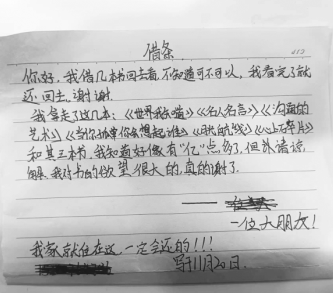 借条
你好，我借几本书回去看，不知道可不可以，我看完了就
还回去，谢谢。
我拿走了这几本：《世界我知道》《名人名言》《沟通的
艺术》《当你孤单你会想起谁》《
和其三本书，我知道好像有“亿”点多了，但外请谅
解，我对书的欲望很大的，真的谢了。
一位大朋友！
我家就住在这一定会还的！！！
写于11月20日.